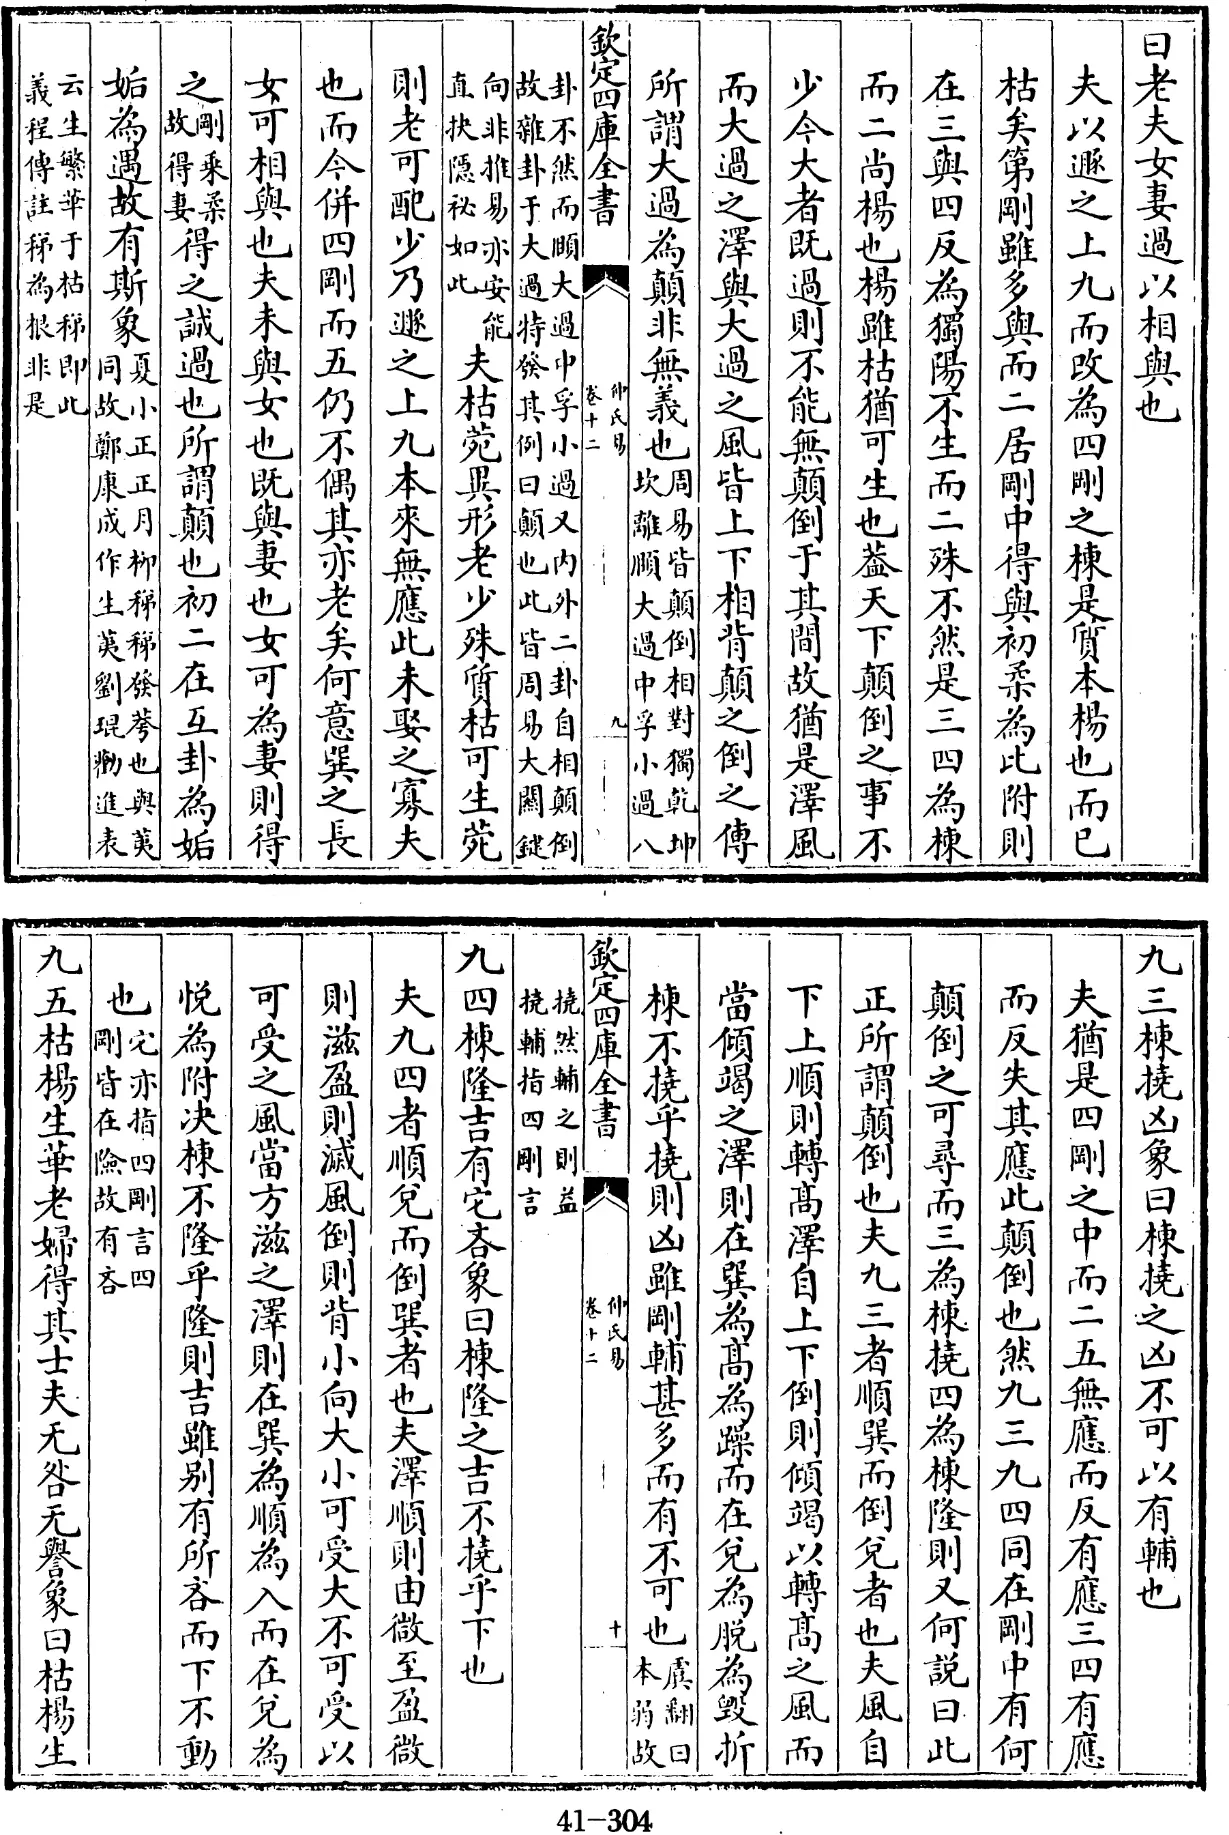 曰老夫女妻過以相與也
夫以遯之上九而改為四剛之棟是質本楊也而已
枯矣第剛雖多與而二居剛中得與初柔為比附則
在三與四反為獨陽不生而二殊不然是三四為棟
而二尚楊也楊雖枯猶可生也葢天下顛倒之事不
少今大者既過則不能無顛倒于其間故猶是澤風
而大過之澤與大過之風皆上下相背顛之倒之傳
所謂大過為顛非無義也周易皆顛倒相對獨乾坤
坎離頤大過中孚小過八
欽定四庫全書
仲氏易
卷十二
九
卦不然而頤大過中孚小過又內外二卦自相顛倒
故雜卦于大過特發其例曰顛也此皆周易大關鍵
向非推易亦安能
直抉隱秘如此
夫枯菀異形老少殊質枯可生菀
則老可配少乃遯之上九本來無應此未娶之寡夫
也而今併四剛而五仍不偶其亦老矣何意巽之長
女可相與也夫未與女也既與妻也女可為妻則得
之剛乘柔
故得妻
得之誠過也所謂顛也初二在互卦為姤
姤為遇故有斯象夏小正正月柳稊稊發莩也與荑
同故鄭康成作生荑劉琨勸進表
云生繁華于枯稊即此
義程傳註稊為根非是
九三棟撓凶象曰棟撓之凶不可以有輔也
夫猶是四剛之中而二五無應而反有應三四有應
而反失其應此顛倒也然九三九四同在剛中有何
顛倒之可尋而三為棟撓四為棟隆則又何說曰此
正所謂顛倒也夫九三者順巽而倒兌者也夫風自
下上順則轉髙澤自上下倒則傾竭以轉髙之風而
當傾竭之澤則在巽為髙為躁而在兌為脫為毀折
棟不撓乎撓則凶雖剛輔甚多而有不可也虞翻曰
本弱故
欽定四庫全書
仲氏易
卷十二
十
撓然輔之則益
撓輔指四剛言
九四棟隆吉有它吝象曰棟隆之吉不撓乎下也
夫九四者順兌而倒巽者也夫澤順則由微至盈微
則滋盈則滅風倒則背小向大小可受大不可受以
可受之風當方滋之澤則在巽為順為入而在兌為
悅為附决棟不隆乎隆則吉雖别有所吝而下不動
也它亦指四剛言四
剛皆在險故有吝
九五枯楊生華老婦得其士夫无咎无譽象曰枯楊生
41-304